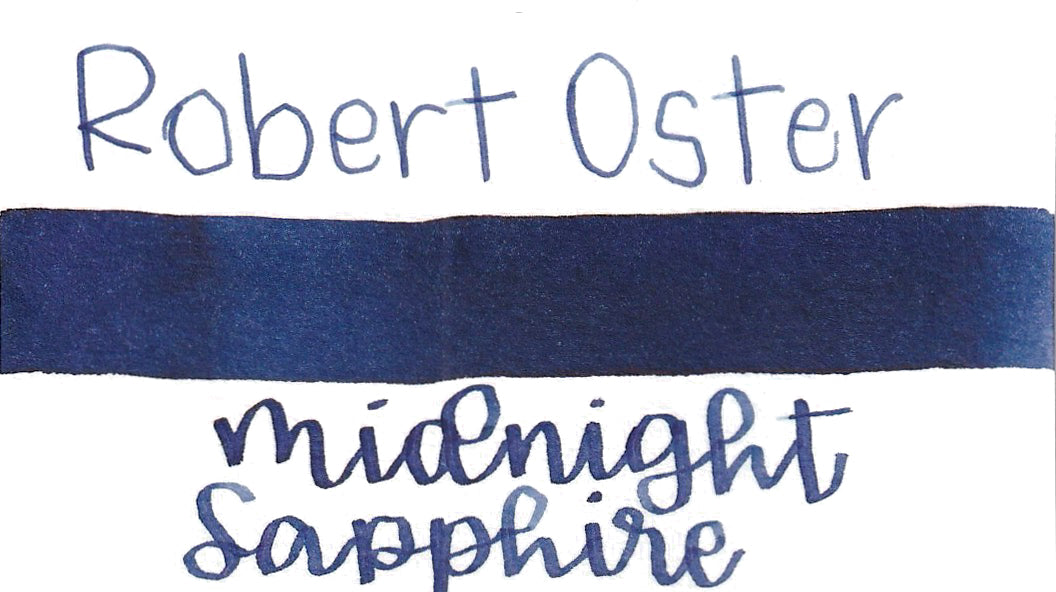 Robert Oster
midnight
Sapphire